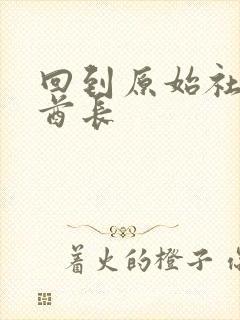 回到原始社
酋长
着火的橙子